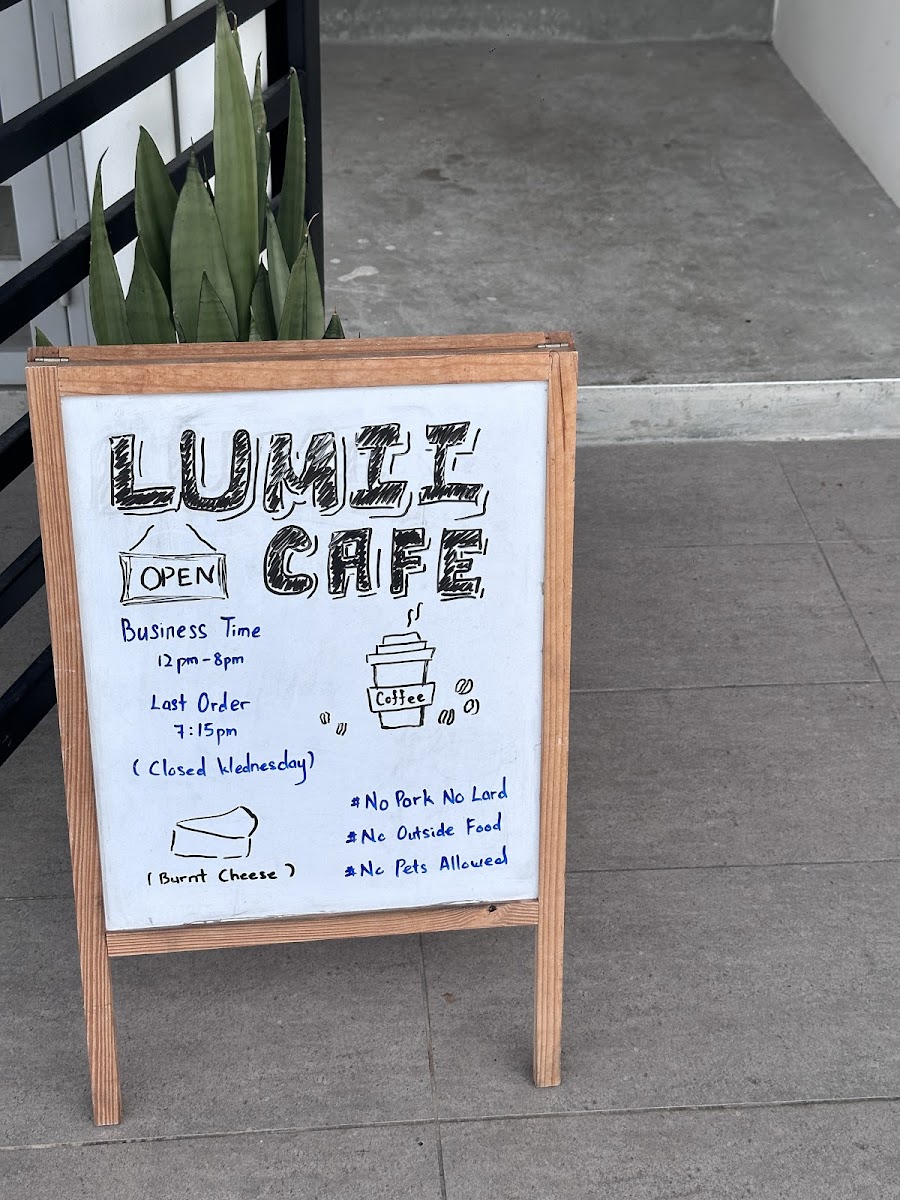 LUMII
CAFE
OPEN
Business Time
12pm-8pm
Coffee
Last Order
7:15pm
(Closed Wednesday)
#No Pork No Lard
#No Outside Food
#No Pets Allowed
(Burnt Cheese)